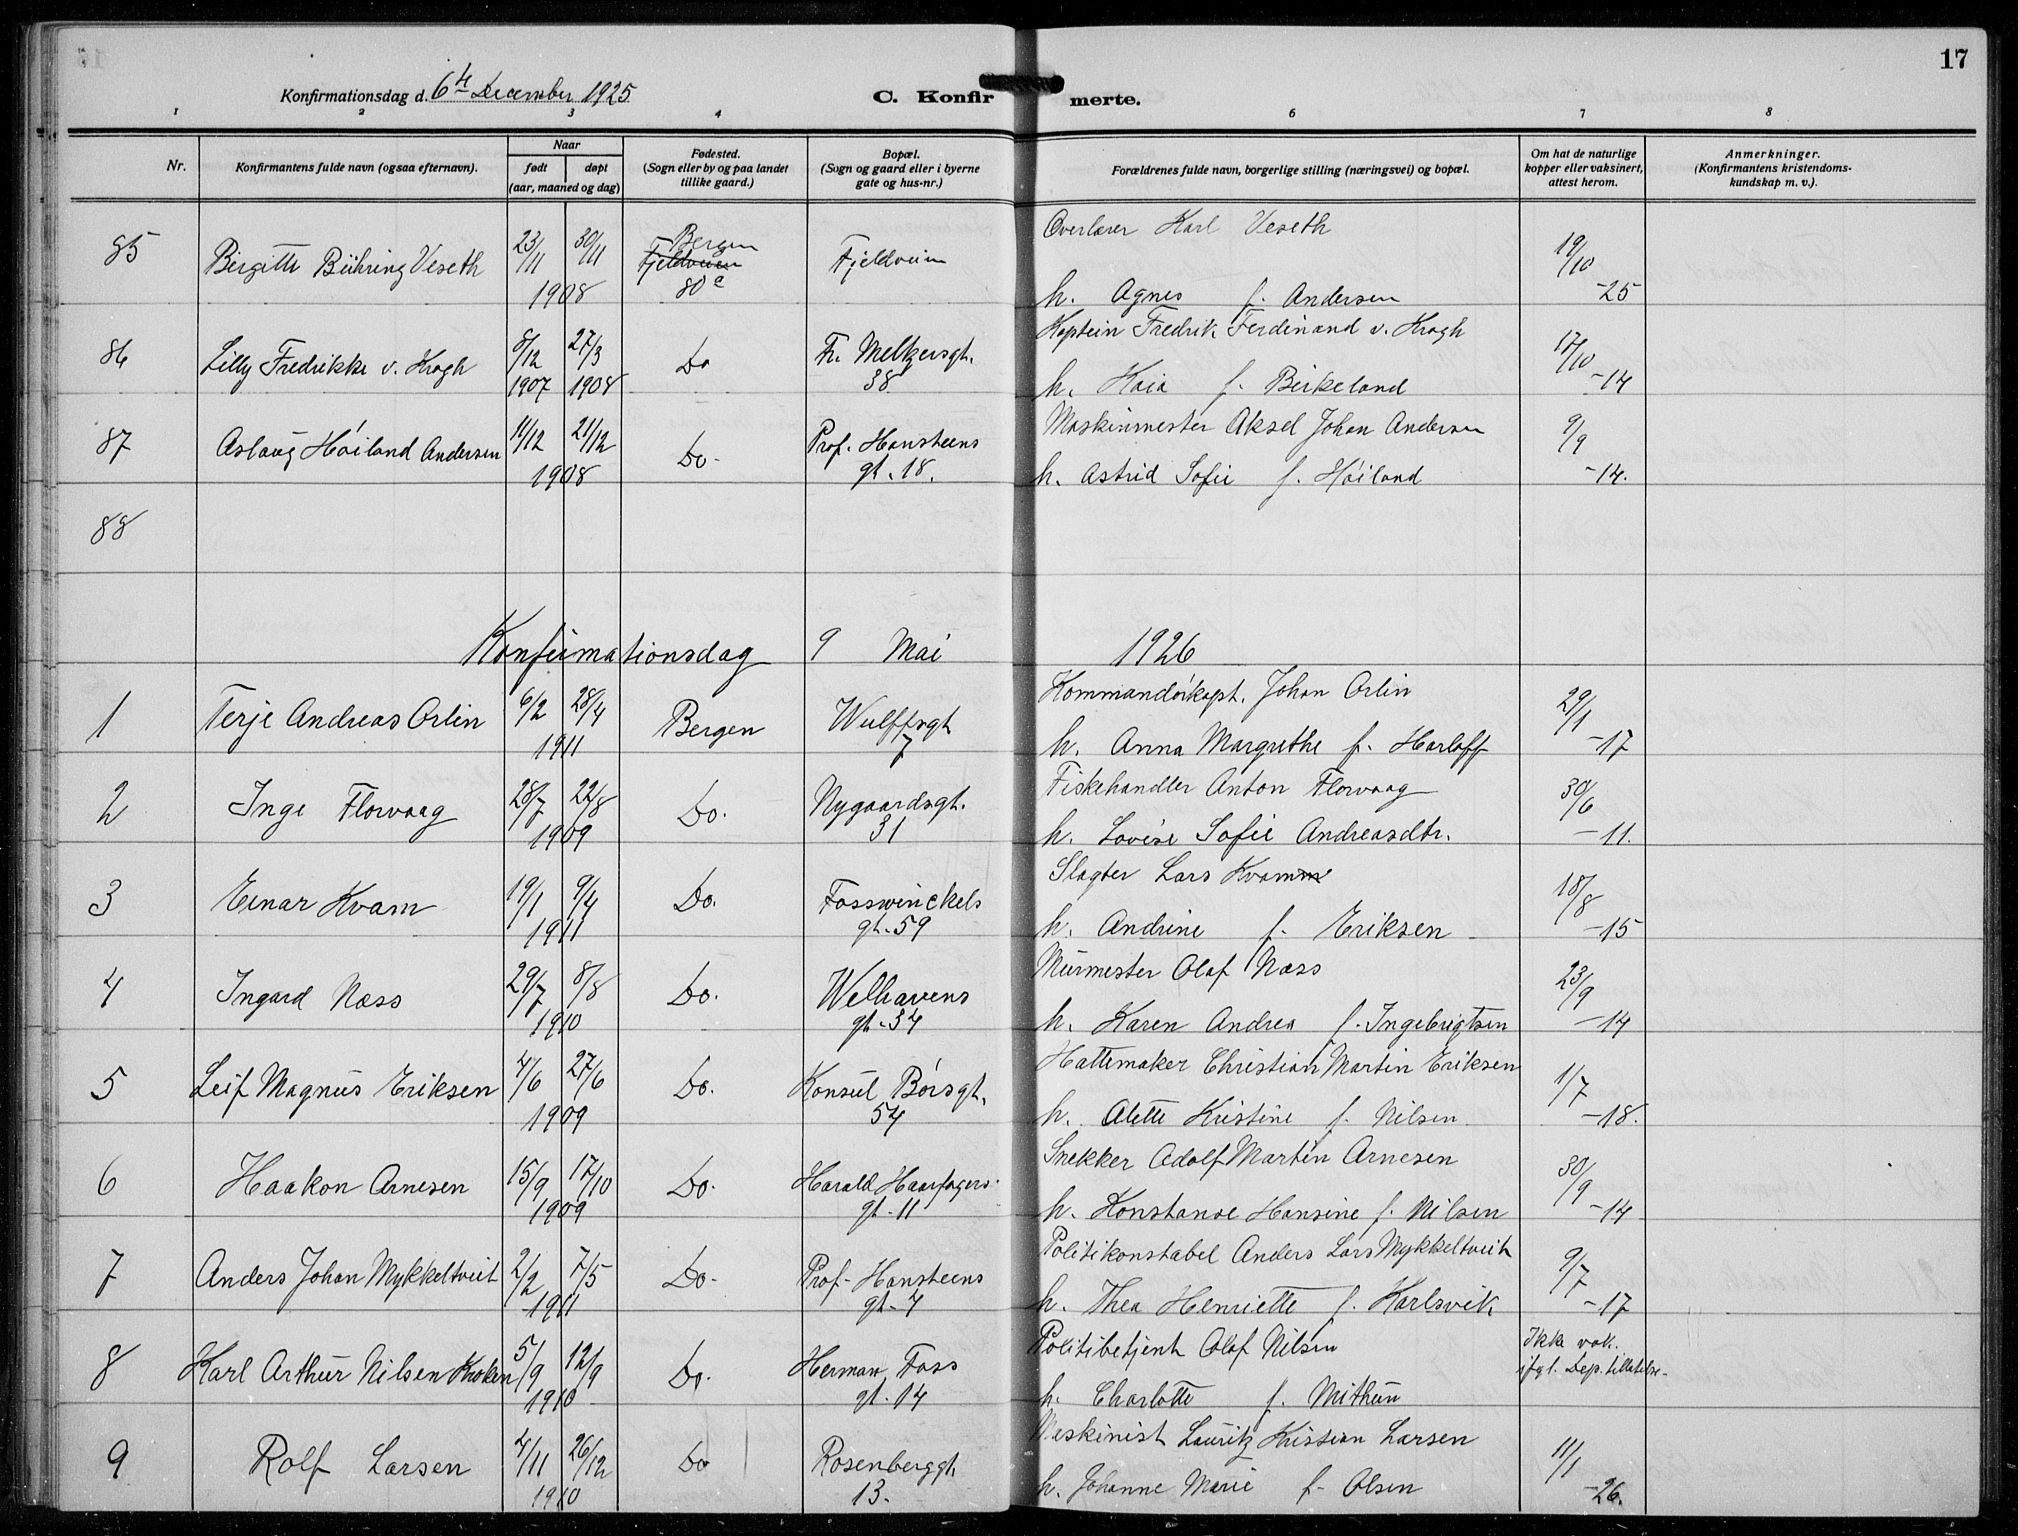 17
Konfirmationsdag d. 6te December 1925.
C. Konfirmerte.
1 2 3 4 6 7 8
Nr.
Konfirmantens fulde navn (ogsaa efternavn).
Naar
født døpt
(aar, maaned og dag)
Fødested.
(Sogn eller by og paa landet
tillike gaard.)
Bopæl.
(Sogn og gaard eller i byerne
gate og hus-nr.)
Forældrenes fulde navn, borgerlige stilling (næringsvei) og bopæl.
Om hat de naturlige
kopper eller vaksinert,
attest herom.
Anmerkninger.
(Konfirmantens kristendoms-
kundskap m. v.).
Overlærer Karl Veseth
85 Birgitte Bühring Veseth 23/11 30/11 Bergen Fjeldveien Fjeldveien 19/10
1908 80c h. Agnes f. Andersen -25
Kaptein Fredrik Ferdinand v. Krogh
86 Lilly Fredrikke v. Krogh 8/12 27/3 Do Fr. Meltzersgt. 17/10
1907 1908 38 h. Kaia f. Birkeland -14
Maskinmester Aksel Johan Andersen
87 Aslaug Høiland Andersen 11/12 21/12 Do. Prof. Hansteens 9/9
1908 gt. 18. h. Astrid Sofie f. Høiland -14.
88
Konfirmationsdag 9 Mai 1926
Kommandørkapt. Johan Orlin
1 Terje Andreas Orlin 6/2 28/4 Bergen Wulffsgt 29/1
1911 7 h. Anna Margrethe f. Harloff -17
Fiskehandler Anton Florvaag
2 Inge Florvaag 28/7 22/8 Do. Nygaardsgt. 30/6
1909 31 h. Lovise Sofie Andreasdtr. -11.
Slagter Lars Kvamm
3 Einar Kvam 19/1 9/4 Do. Fosswinckels 18/8
1911 gt. 59 h. Andrine f. Eriksen -15
Murmester Olaf Næss
4 Ingard Næss 29/7 8/8 Do. Welhavens 23/9
1910 gt. 34 h. Karen Andrea f. Ingebrigtsen -14
Hattemaker Christian Martin Eriksen
5 Leif Magnus Eriksen 4/6 27/6 Do. Konsul Børsgt. 1/7
1909 54 h. Alette Kristine f. Nilsen -18.
Snekker Adolf Martin Arnesen
6 Haakon Arnesen 15/9 17/10 Do. Harald Haarfagers 30/9
1909 gt. 11 h. Konstanse Hansine f. Nilsen -14
Politikonstabel Anders Lars Mykkeltveit
7 Anders Johan Mykkeltveit 2/2 7/5 Do. Prof. Hansteens 9/7
1911 gt. 4 h. Thea Henriette f. Karlsvik -17
Politibetjent Olaf Nilsen Ikke vak.
8 Karl Arthur Nilsen Kroken 5/9 12/9 Do. Herman Foss ifgl. Dep. tillatelse-
1910 gt. 14 h. Charlotte f. Mithun
Maskinist Lauritz Kristian Larsen
9 Rolf Larsen 4/11 26/12 Do Rosenberggt. 11/1
1910 13. h. Johanne Marie f. Olsen -26.